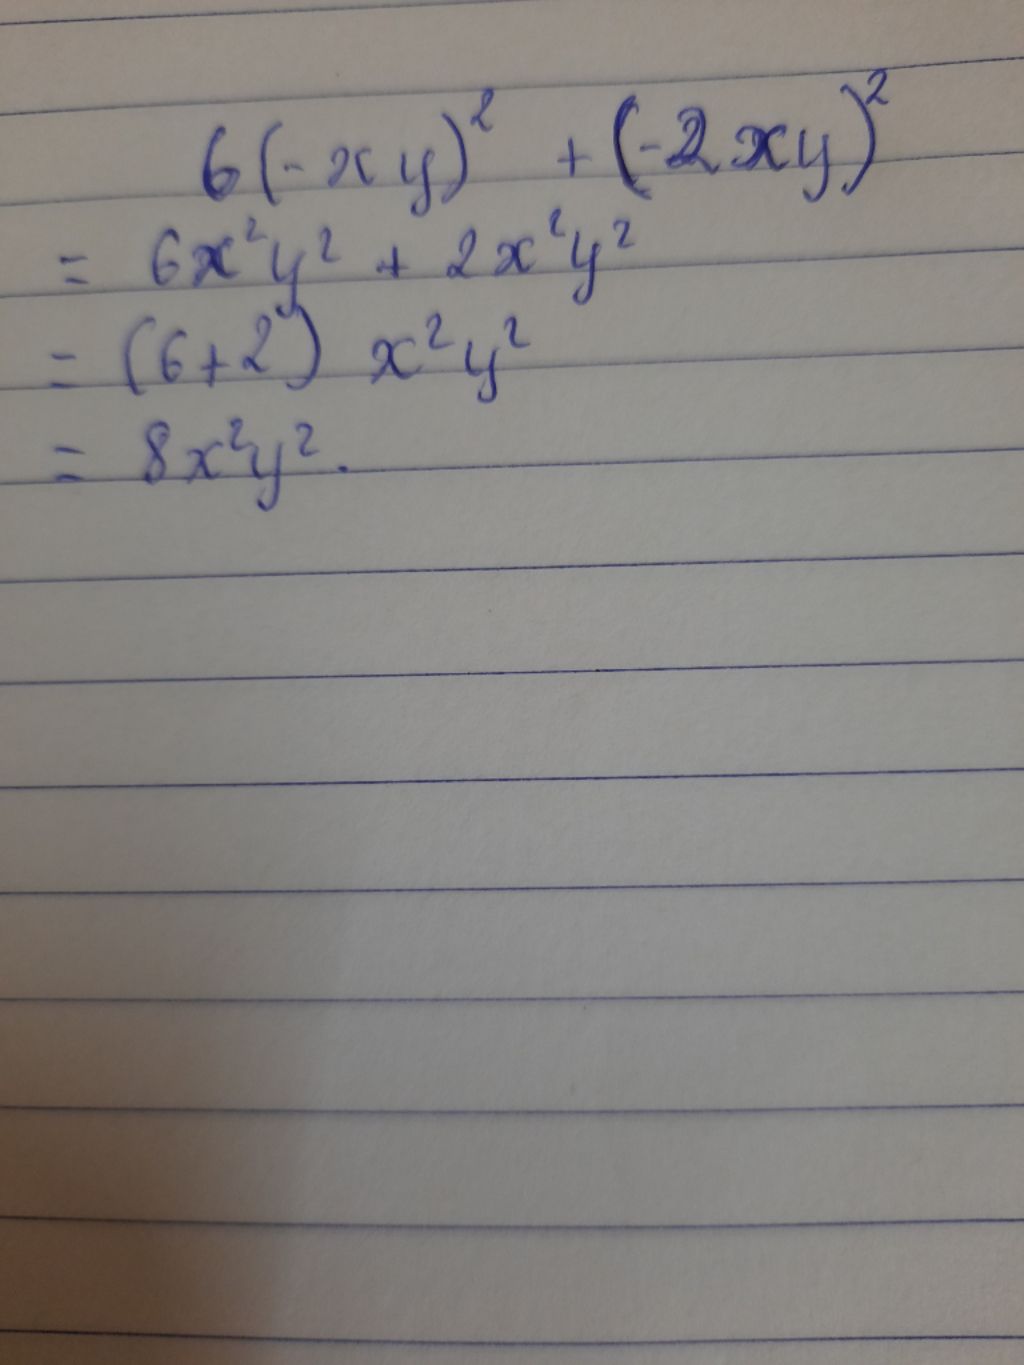 6(-xy)² + (-2xy)²
= 6x²y² + 2x²y²
= (6+2) x²y²
= 8x²y².